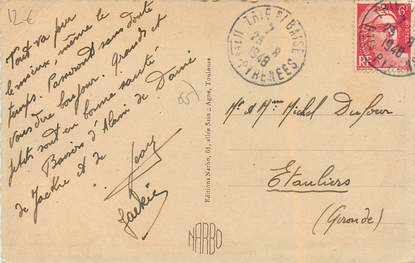 12€
Tout va pour
le mieux, même le
temps. Passerons sans doute
vous dire bonjour. Grands et
petits sont en bonne santé
Baisers d'Alain de
de Jackie et de
Jackie
65)
Editions Narbo, 61, allée Sain -Agne, Toulouse
NARBO
TRIE S/ BAISE
1948
PYRENEES
6F
RF
Mr et Mme Michel Dufour
Etauliers
(Gironde)